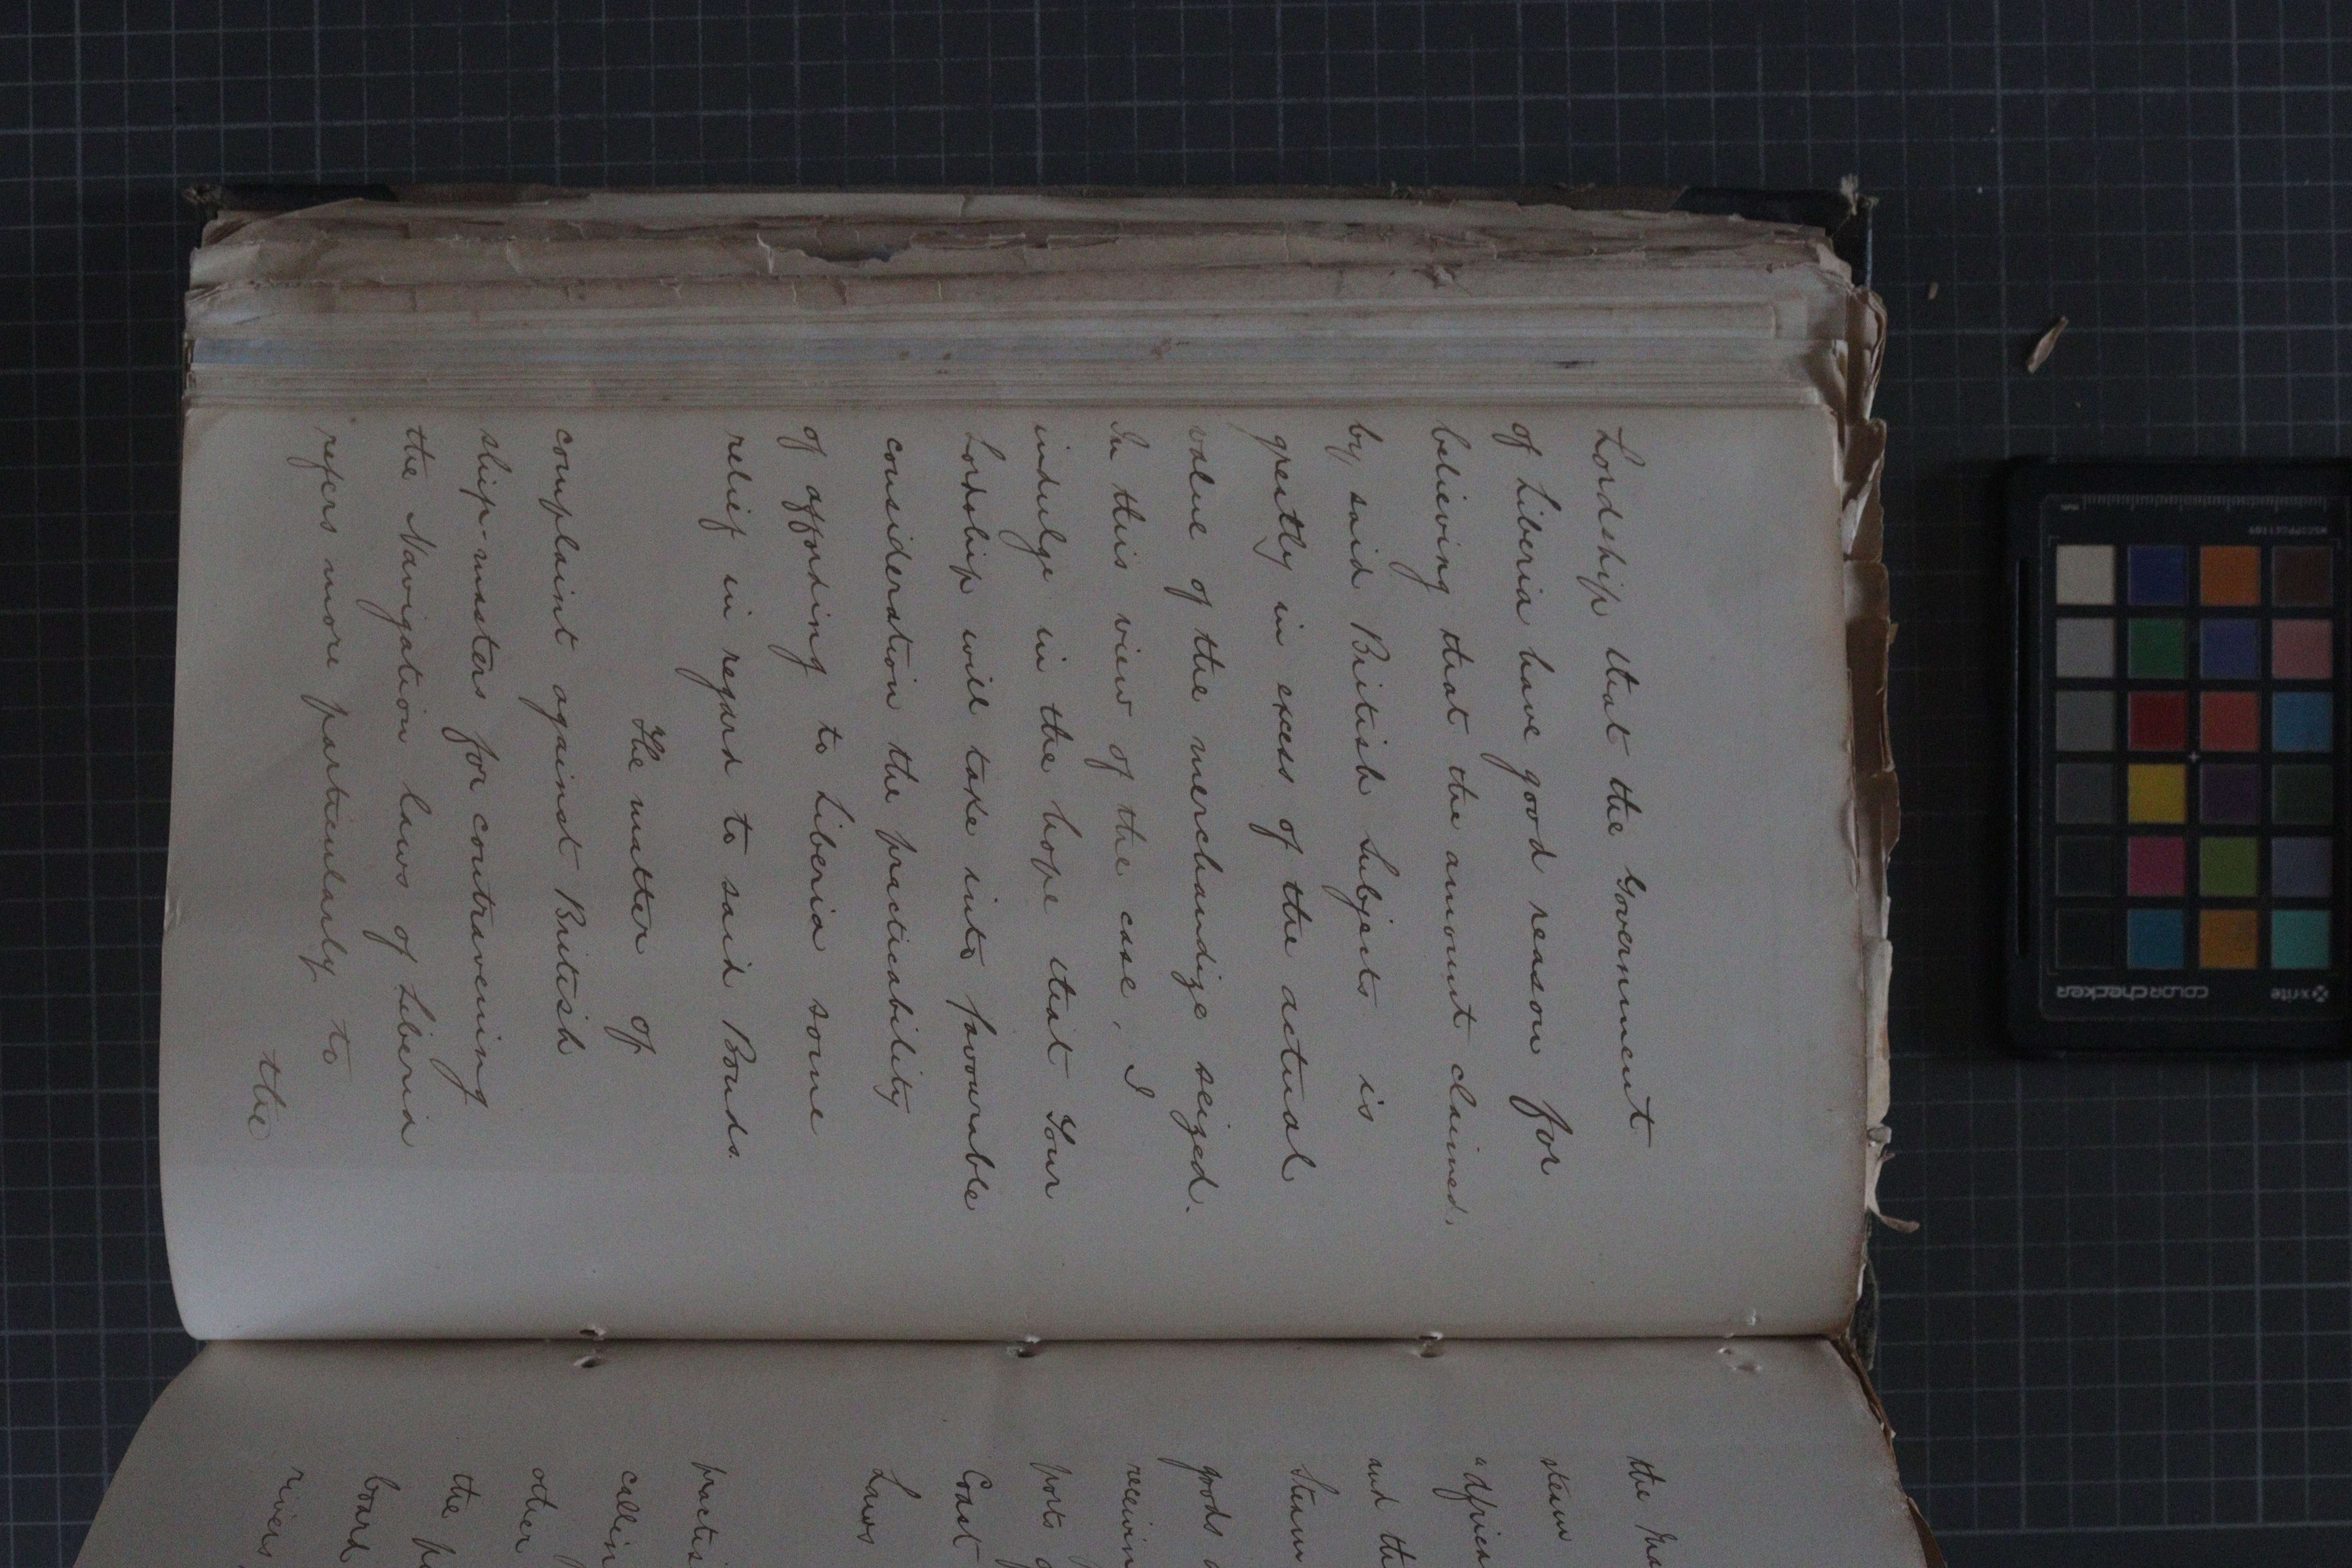 Lordship, that the Government
of Liberia have good reason for
believing that the amount claimed,
by said British Subjects is
greatly in excess of the actual
value of the merchandize seized.
In this view of the case, I
indulge in the hope that Your
Lordship will take into favourable
consideration the practicability
of affording to Liberia some
relief in regard to said Bonds.
The matter of
complaint against British
ship-masters for contravening
the Navigation laws of Liberia
refers more particularly to
the
the
steam
and
Steam
goods
ports
Coast
Laws
other
the
board
rivers
x-rite
colorchecker